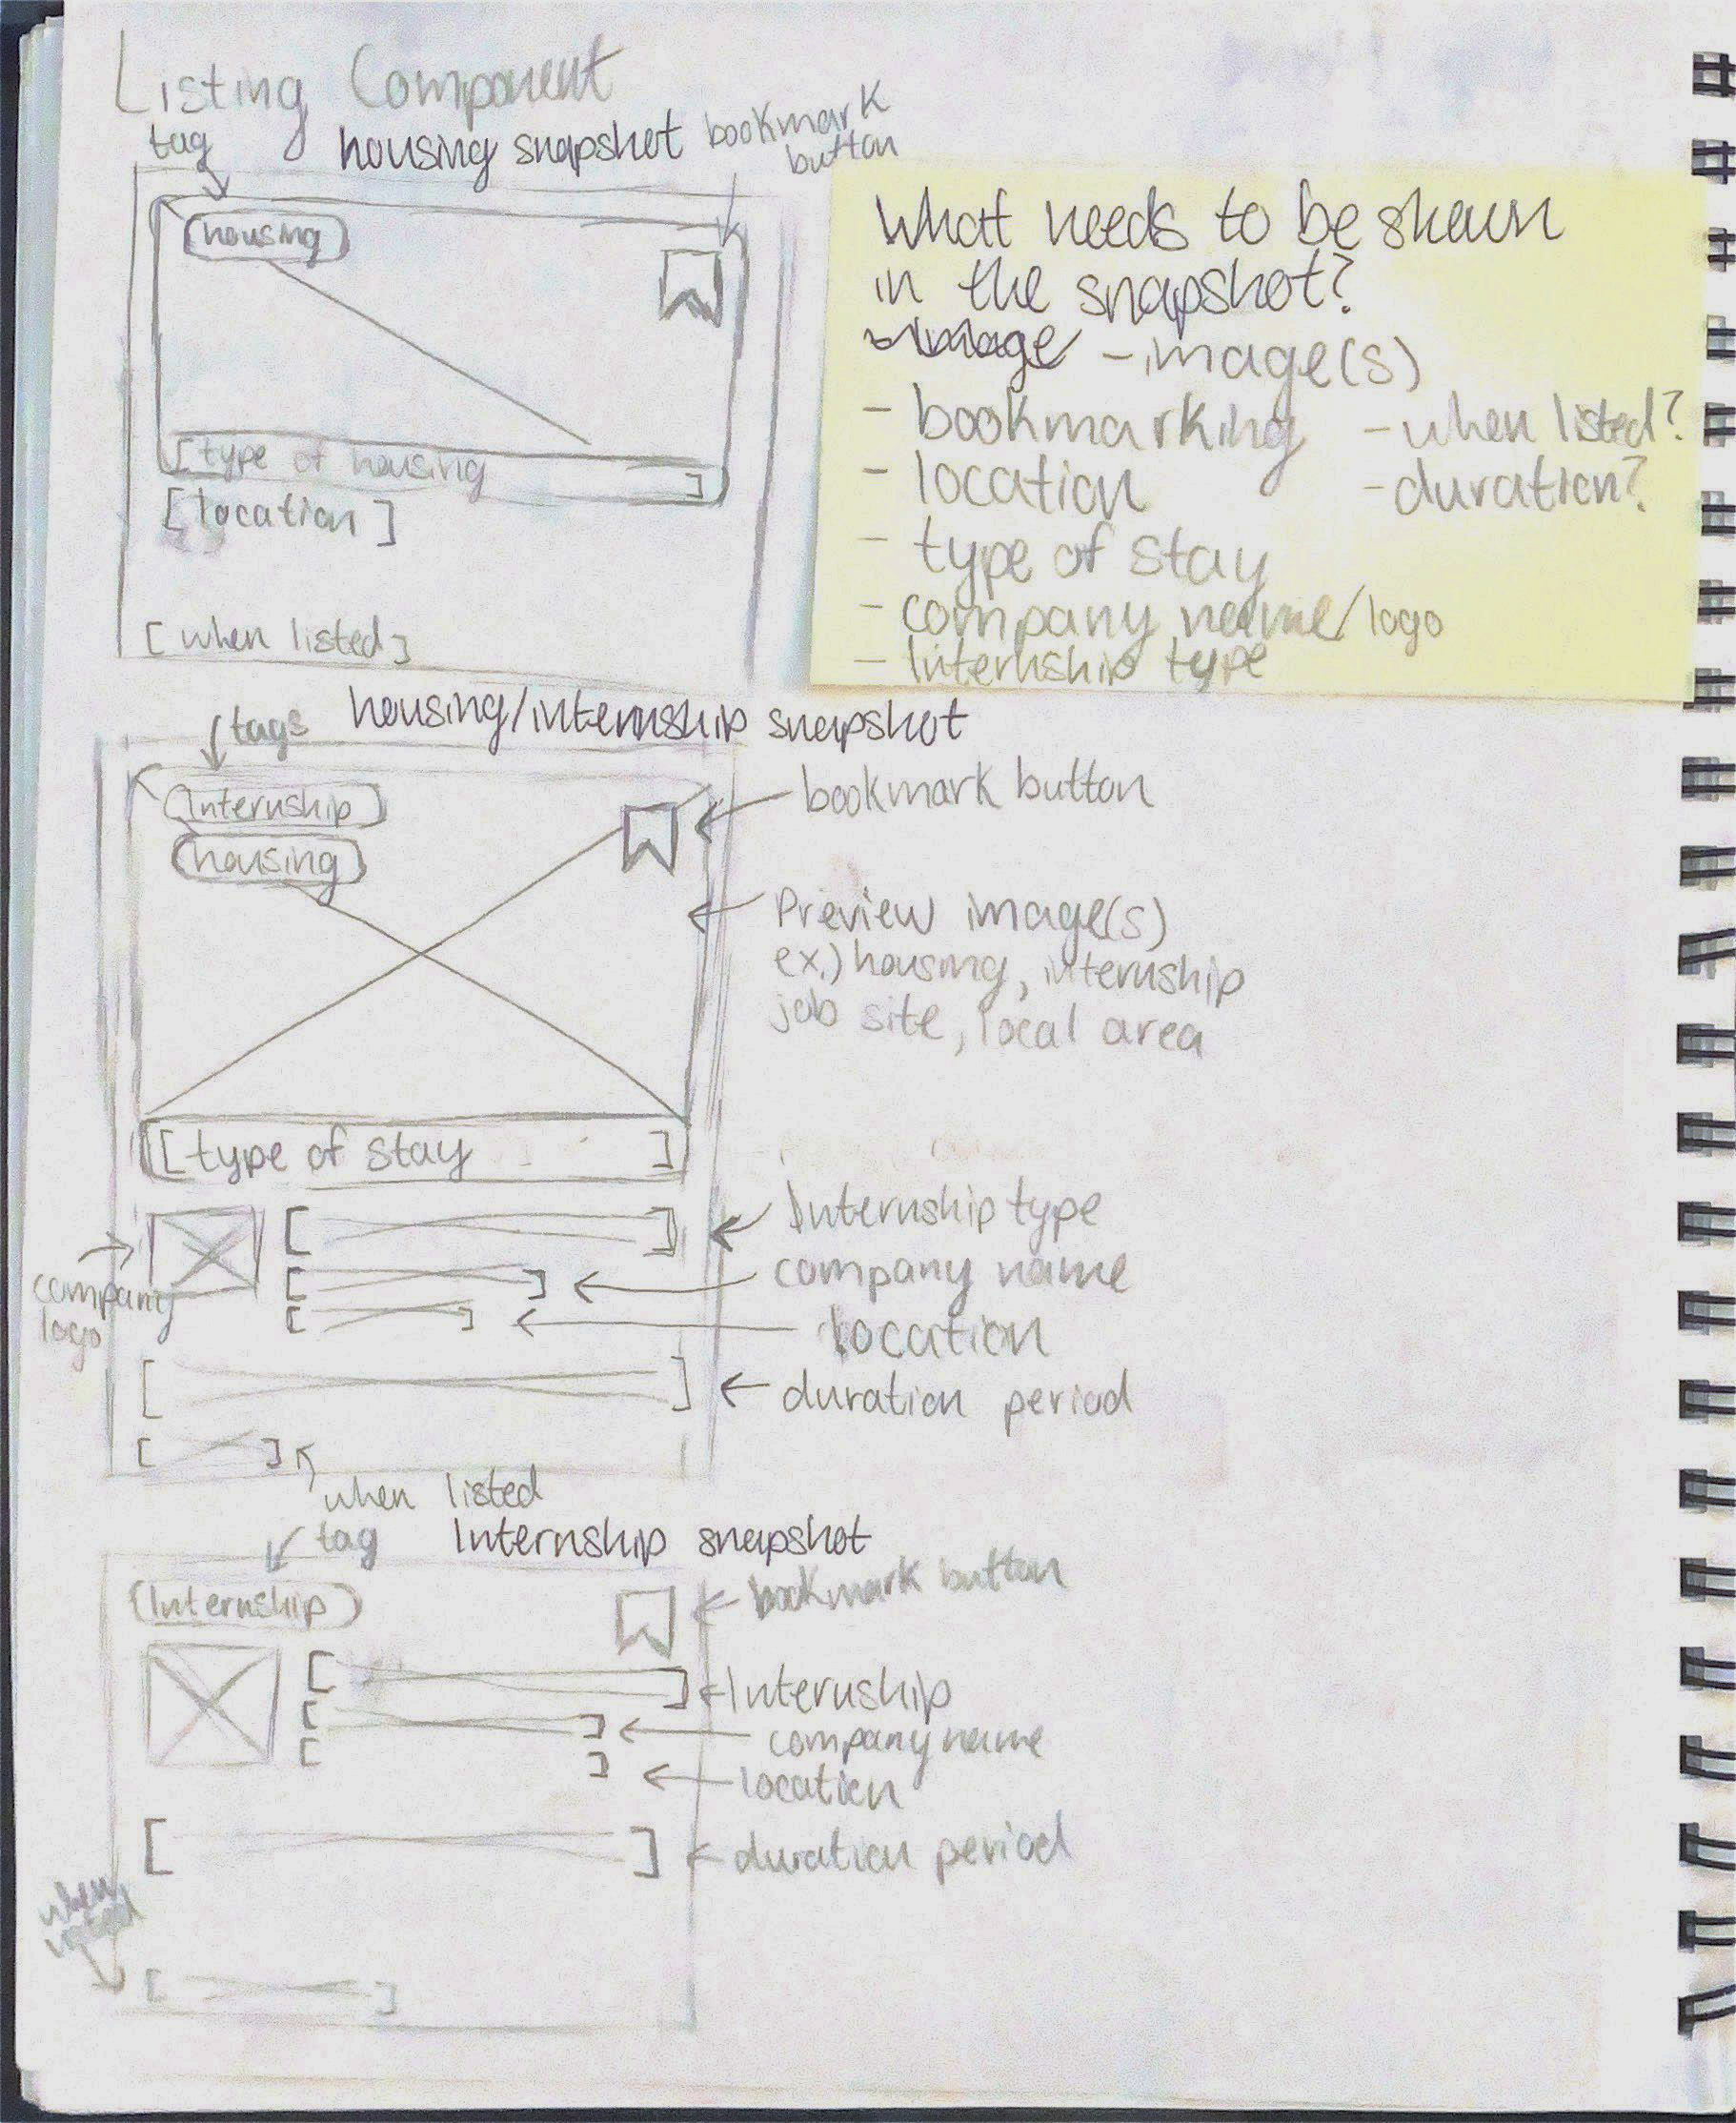 Listing Component
tag
housing snapshot
bookmark
button
housing
[type of housing ]
[location]
[when listed]
What needs to be shown
in the snapshot?
- image(s)
- bookmarking
- when listed?
- location
- duration?
- type of stay
- company name/logo
- Internship type
tags
housing/internship snapshot
Internship
housing
bookmark button
Preview image(s)
ex.) housing, internship
job site, local area
[type of stay ]
Internship type
company name
company
logo
location
duration period
when listed
tag
Internship snapshot
(Internship)
bookmark button
Internship
company name
location
duration period
when
listed